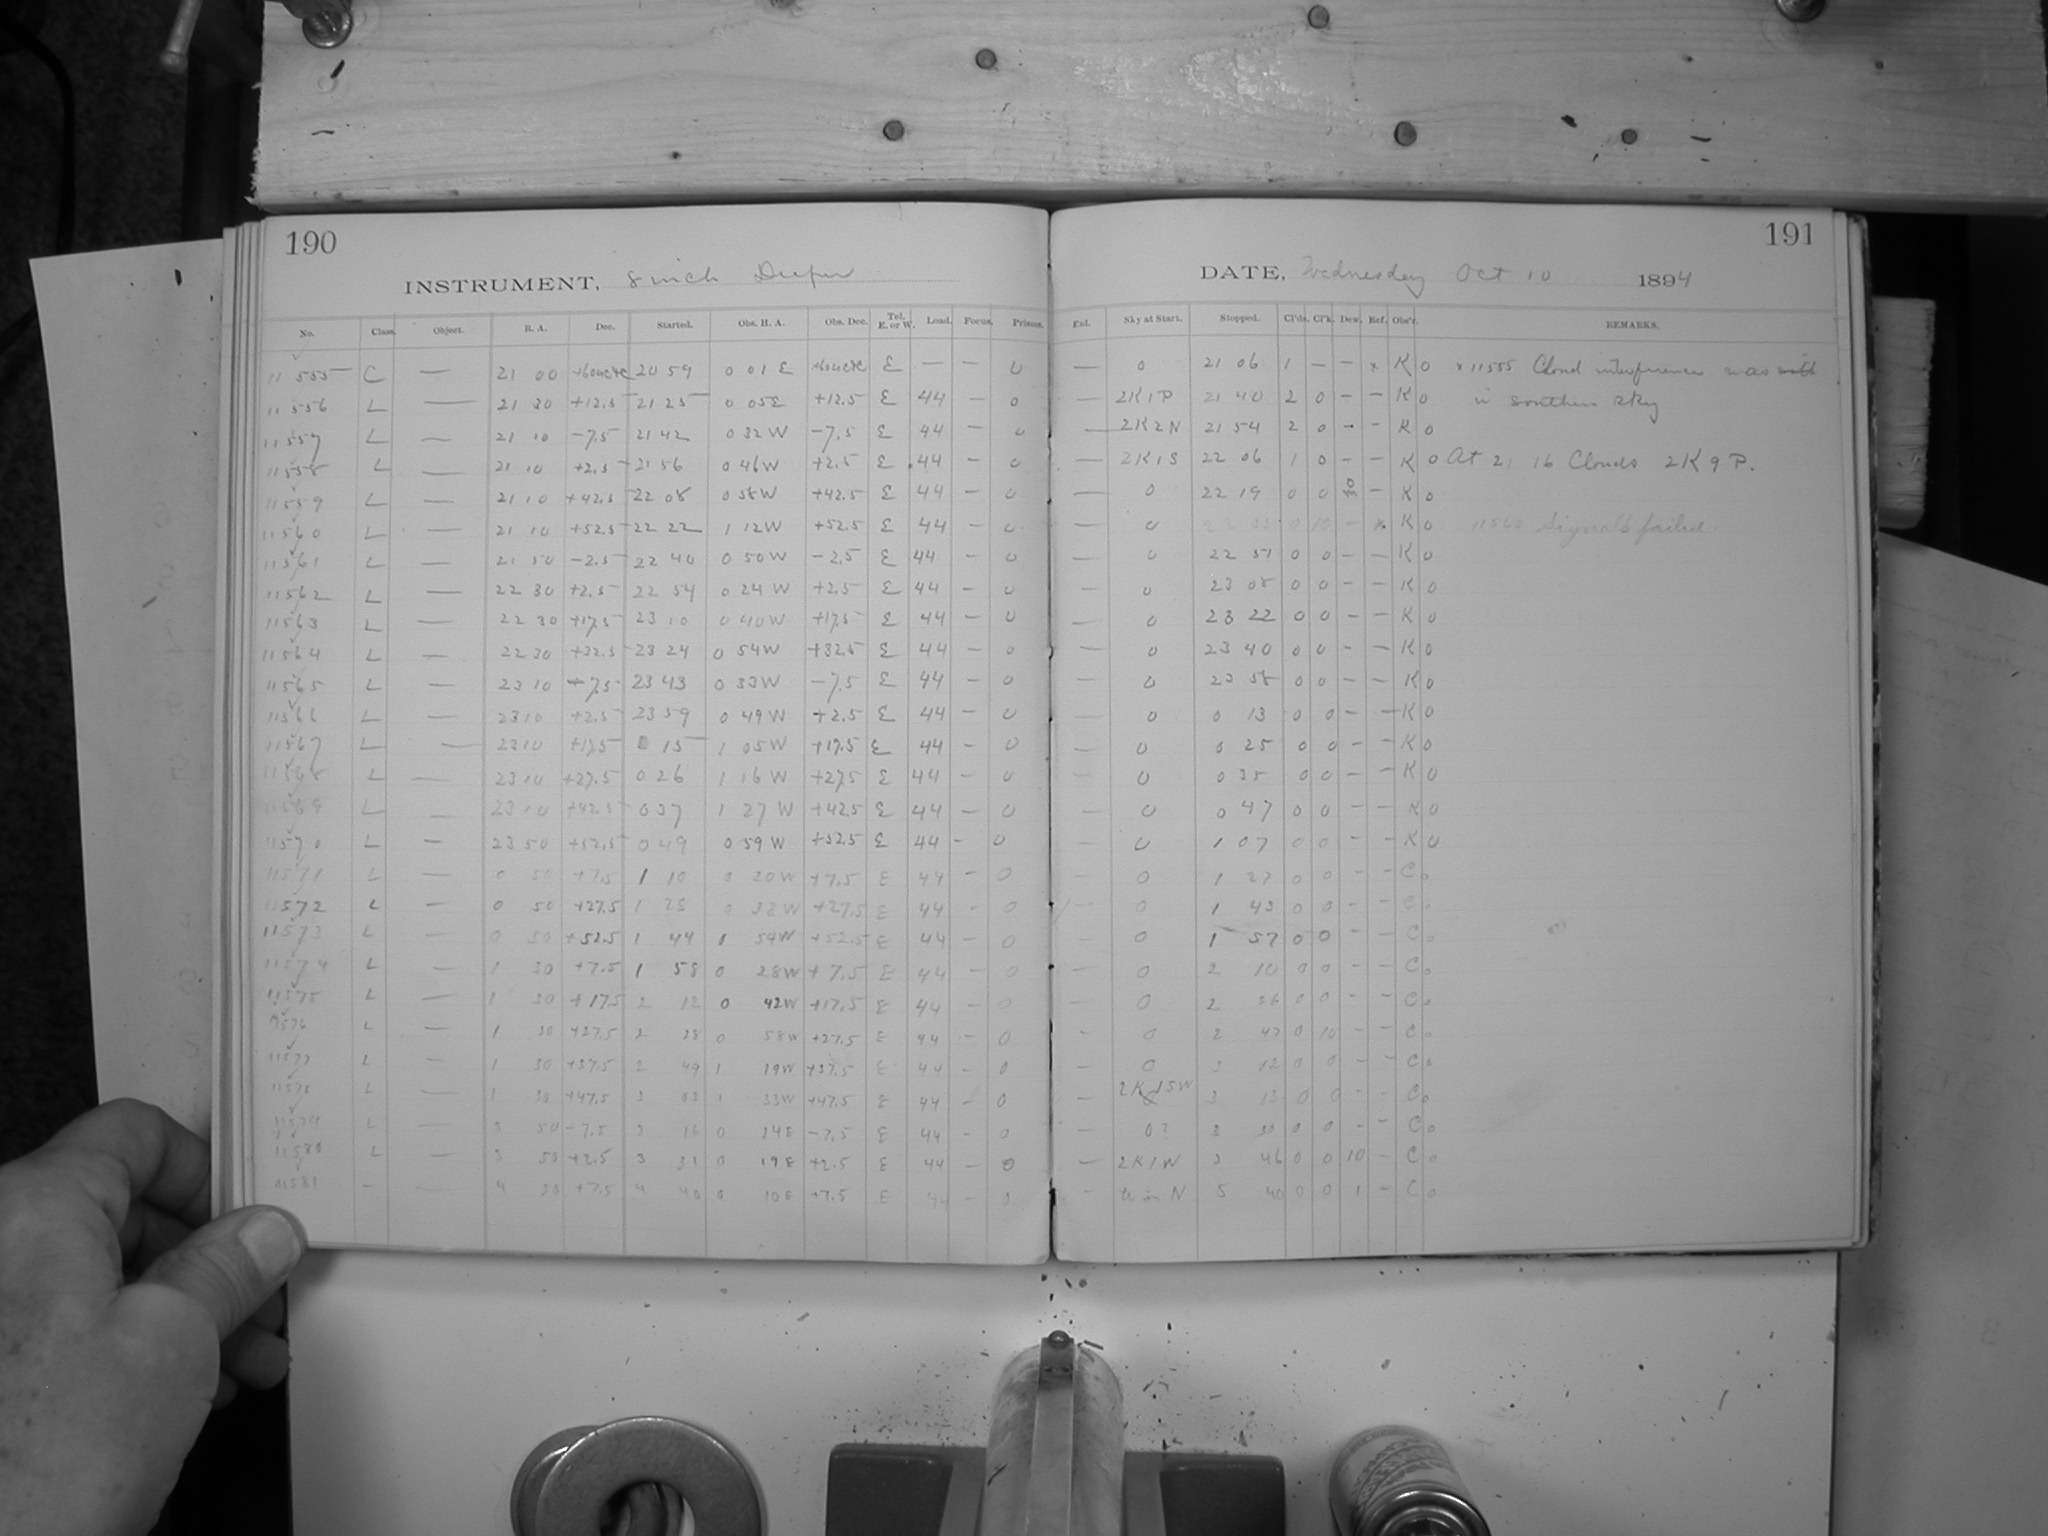 190
INSTRUMENT, 8 inch Draper
No. Class. Object. R. A. Dec. Started. Obs. H. A. Obs. Dec. Tel. E. or W. Load. Focus. Prisms.
11555 C — 21 00 20 59 0 01 E E — — 0
11556 L — 21 30 +12.5 21 25 0 05 E +12.5 E 44 — 0
11557 L — 21 10 -7.5 21 42 0 32 W -7.5 E 44 — 0
11558 L — 21 10 +2.5 21 56 0 46 W +2.5 E 44 — 0
11559 L — 21 10 +42.5 22 08 0 58 W +42.5 E 44 — 0
11560 L — 21 10 +52.5 22 22 1 12 W +52.5 E 44 — 0
11561 L — 21 50 -2.5 22 40 0 50 W -2.5 E 44 — 0
11562 L — 22 30 +2.5 22 54 0 24 W +2.5 E 44 — 0
11563 L — 22 30 +17.5 23 10 0 40 W +17.5 E 44 — 0
11564 L — 22 30 +32.5 23 24 0 54 W +32.5 E 44 — 0
11565 L — 23 10 -7.5 23 43 0 33 W -7.5 E 44 — 0
11566 L — 23 10 +2.5 23 59 0 49 W +2.5 E 44 — 0
11567 L — 23 10 +17.5 0 15 1 05 W +17.5 E 44 — 0
11568 L — 23 10 +27.5 0 26 1 16 W +27.5 E 44 — 0
11569 L — 23 10 +42.5 0 37 1 27 W +42.5 E 44 — 0
11570 L — 23 50 +52.5 0 49 0 59 W +52.5 E 44 — 0
11571 L — 0 50 +7.5 1 10 0 20 W +7.5 E 44 — 0
11572 L — 0 50 +27.5 1 28 0 38 W +27.5 E 44 — 0
11573 L — 0 50 +52.5 1 44 0 54 W +52.5 E 44 — 0
11574 L — 1 30 +7.5 1 58 0 28 W +7.5 E 44 — 0
11575 L — 1 30 +17.5 2 12 0 42 W +17.5 E 44 — 0
11576 L — 1 30 +27.5 2 28 0 58 W +27.5 E 44 — 0
11577 L — 1 30 +37.5 2 49 1 19 W +37.5 E 44 — 0
11578 L — 1 30 +47.5 3 03 1 33 W +47.5 E 44 — 0
11579 L — 3 50 -7.5 3 16 0 34 E -7.5 E 44 — 0
11580 L — 3 50 +2.5 3 31 0 19 E +2.5 E 44 — 0
11581 — — 4 50 +7.5 4 40 0 10 E +7.5 E 44 — 0
191
DATE, Wednesday Oct 10 1894
Ent. Sky at Start. Stopped. Cl'ds. Cl'k. Dew. Ref. Obs'r. REMARKS.
— 0 21 06 1 — — x K 0 x 11555 Cloud interference was
— 2K1P 21 40 2 0 — — K 0 in southern sky
— 2K2N 21 54 2 0 — — K 0
— 2K1S 22 06 1 0 — — K 0 At 21 16 Clouds 2K9P.
— 0 22 19 0 0 — K 0
— 0 22 33 0 10 — x K 0 11560 Signals failed.
— 0 22 51 0 0 — — K 0
— 0 23 08 0 0 — — K 0
— 0 23 22 0 0 — — K 0
— 0 23 40 0 0 — — K 0
— 0 23 58 0 0 — — K 0
— 0 0 13 0 0 — — K 0
— 0 0 25 0 0 — — K 0
— 0 0 35 0 0 — — K 0
— 0 0 47 0 0 — — K 0
— 0 1 07 0 0 — — K 0
— 0 1 27 0 0 — — C 0
— 0 1 43 0 0 — — C 0
— 0 1 57 0 0 — — C 0
— 0 2 10 0 0 — — C 0
— 0 2 26 0 0 — — C 0
— 0 2 47 0 10 — — C 0
— 0 3 02 0 0 — — C 0
— 2K1SW 3 15 0 0 — — C 0
— 0? 3 30 0 0 — — C 0
— 2K1W 3 46 0 0 10 — C 0
— in N 5 40 0 0 1 — C 0